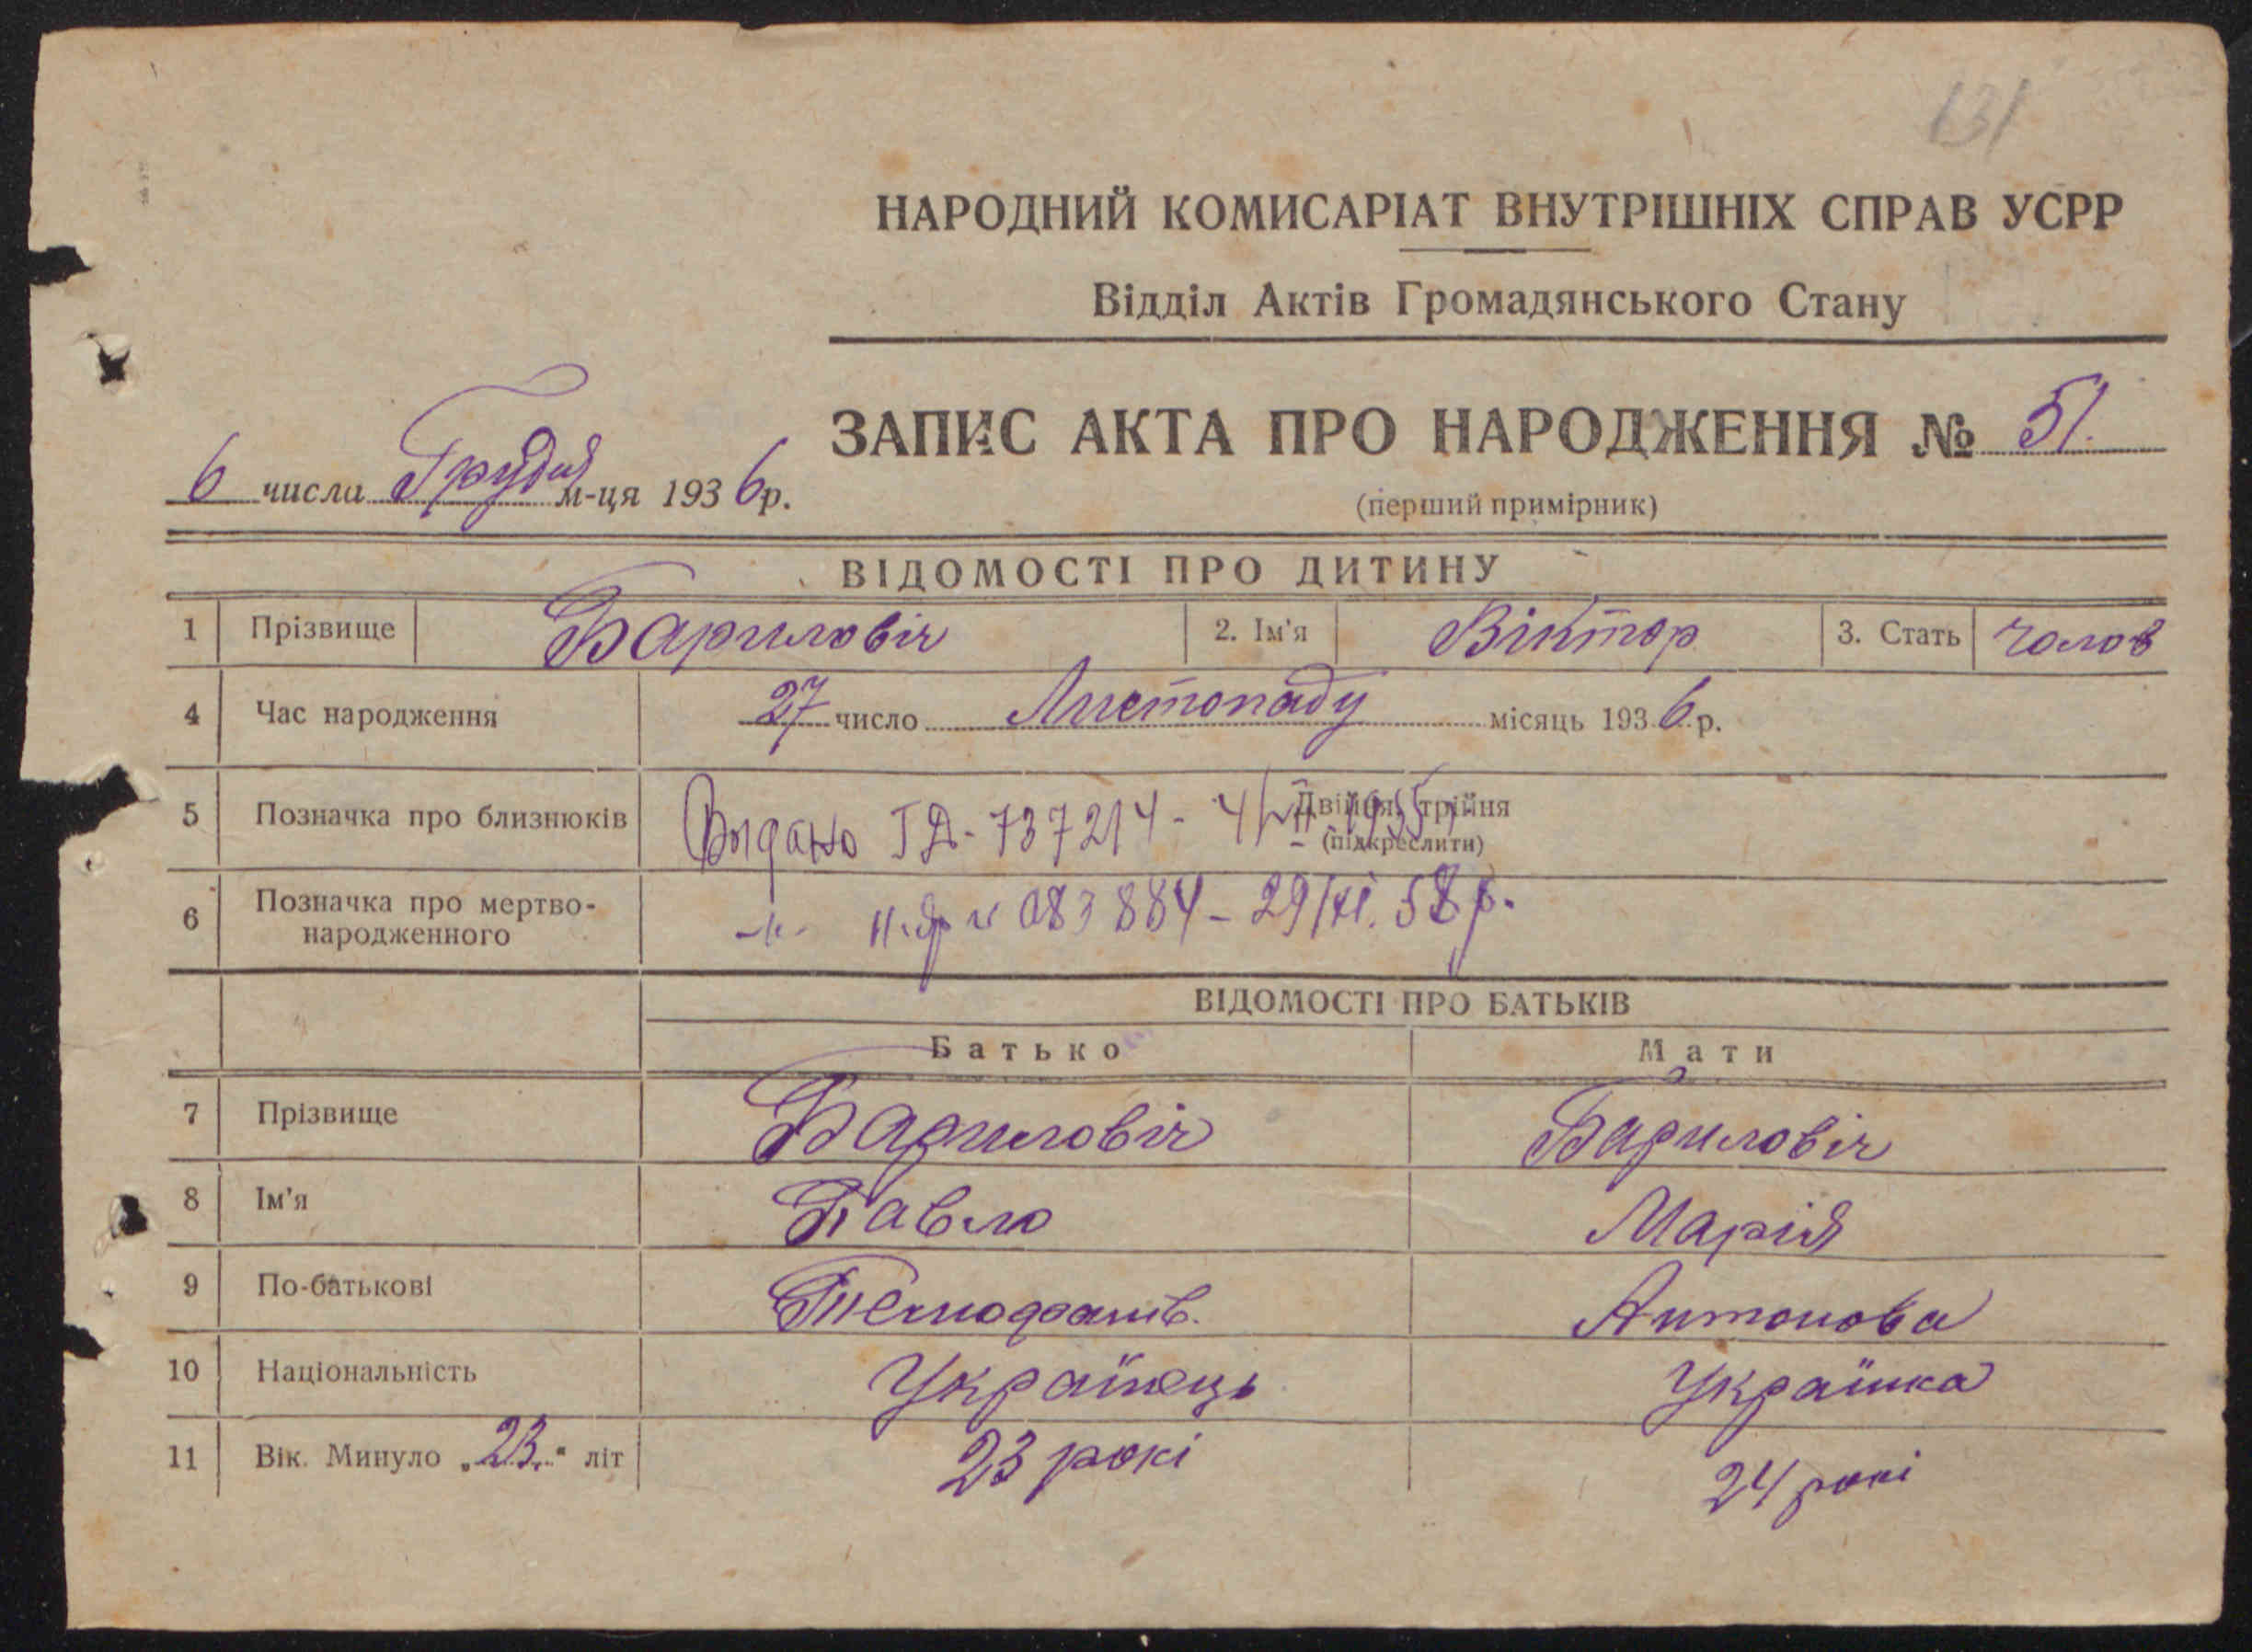 131
НАРОДНИЙ КОМИСАРІАТ ВНУТРІШНІХ СПРАВ УСРР
Відділ Актів Громадянського Стану
ЗАПИС АКТА ПРО НАРОДЖЕННЯ № 51.
6 числа Грудня м-ця 1936р.
(перший примірник)
ВІДОМОСТІ ПРО ДИТИНУ
1 Прізвище Бариловіч 2. Ім'я Віктор 3. Стать Чолов
4 Час народження 27 число Листопаду місяць 1936 р.
5 Позначка про близнюків Двійня, трійня
(підкреслити)
Выдано 737214 - 4/
6 Позначка про мертво-
народженного
083884 - 29/
ВІДОМОСТІ ПРО БАТЬКІВ
Батько Мати
7 Прізвище Бариловіч Бариловіч
8 Ім'я Павло Марія
9 По-батькові Антонова
10 Національність Українець Українка
11 Вік. Минуло „23.“ літ 23 рокі 24 рокі